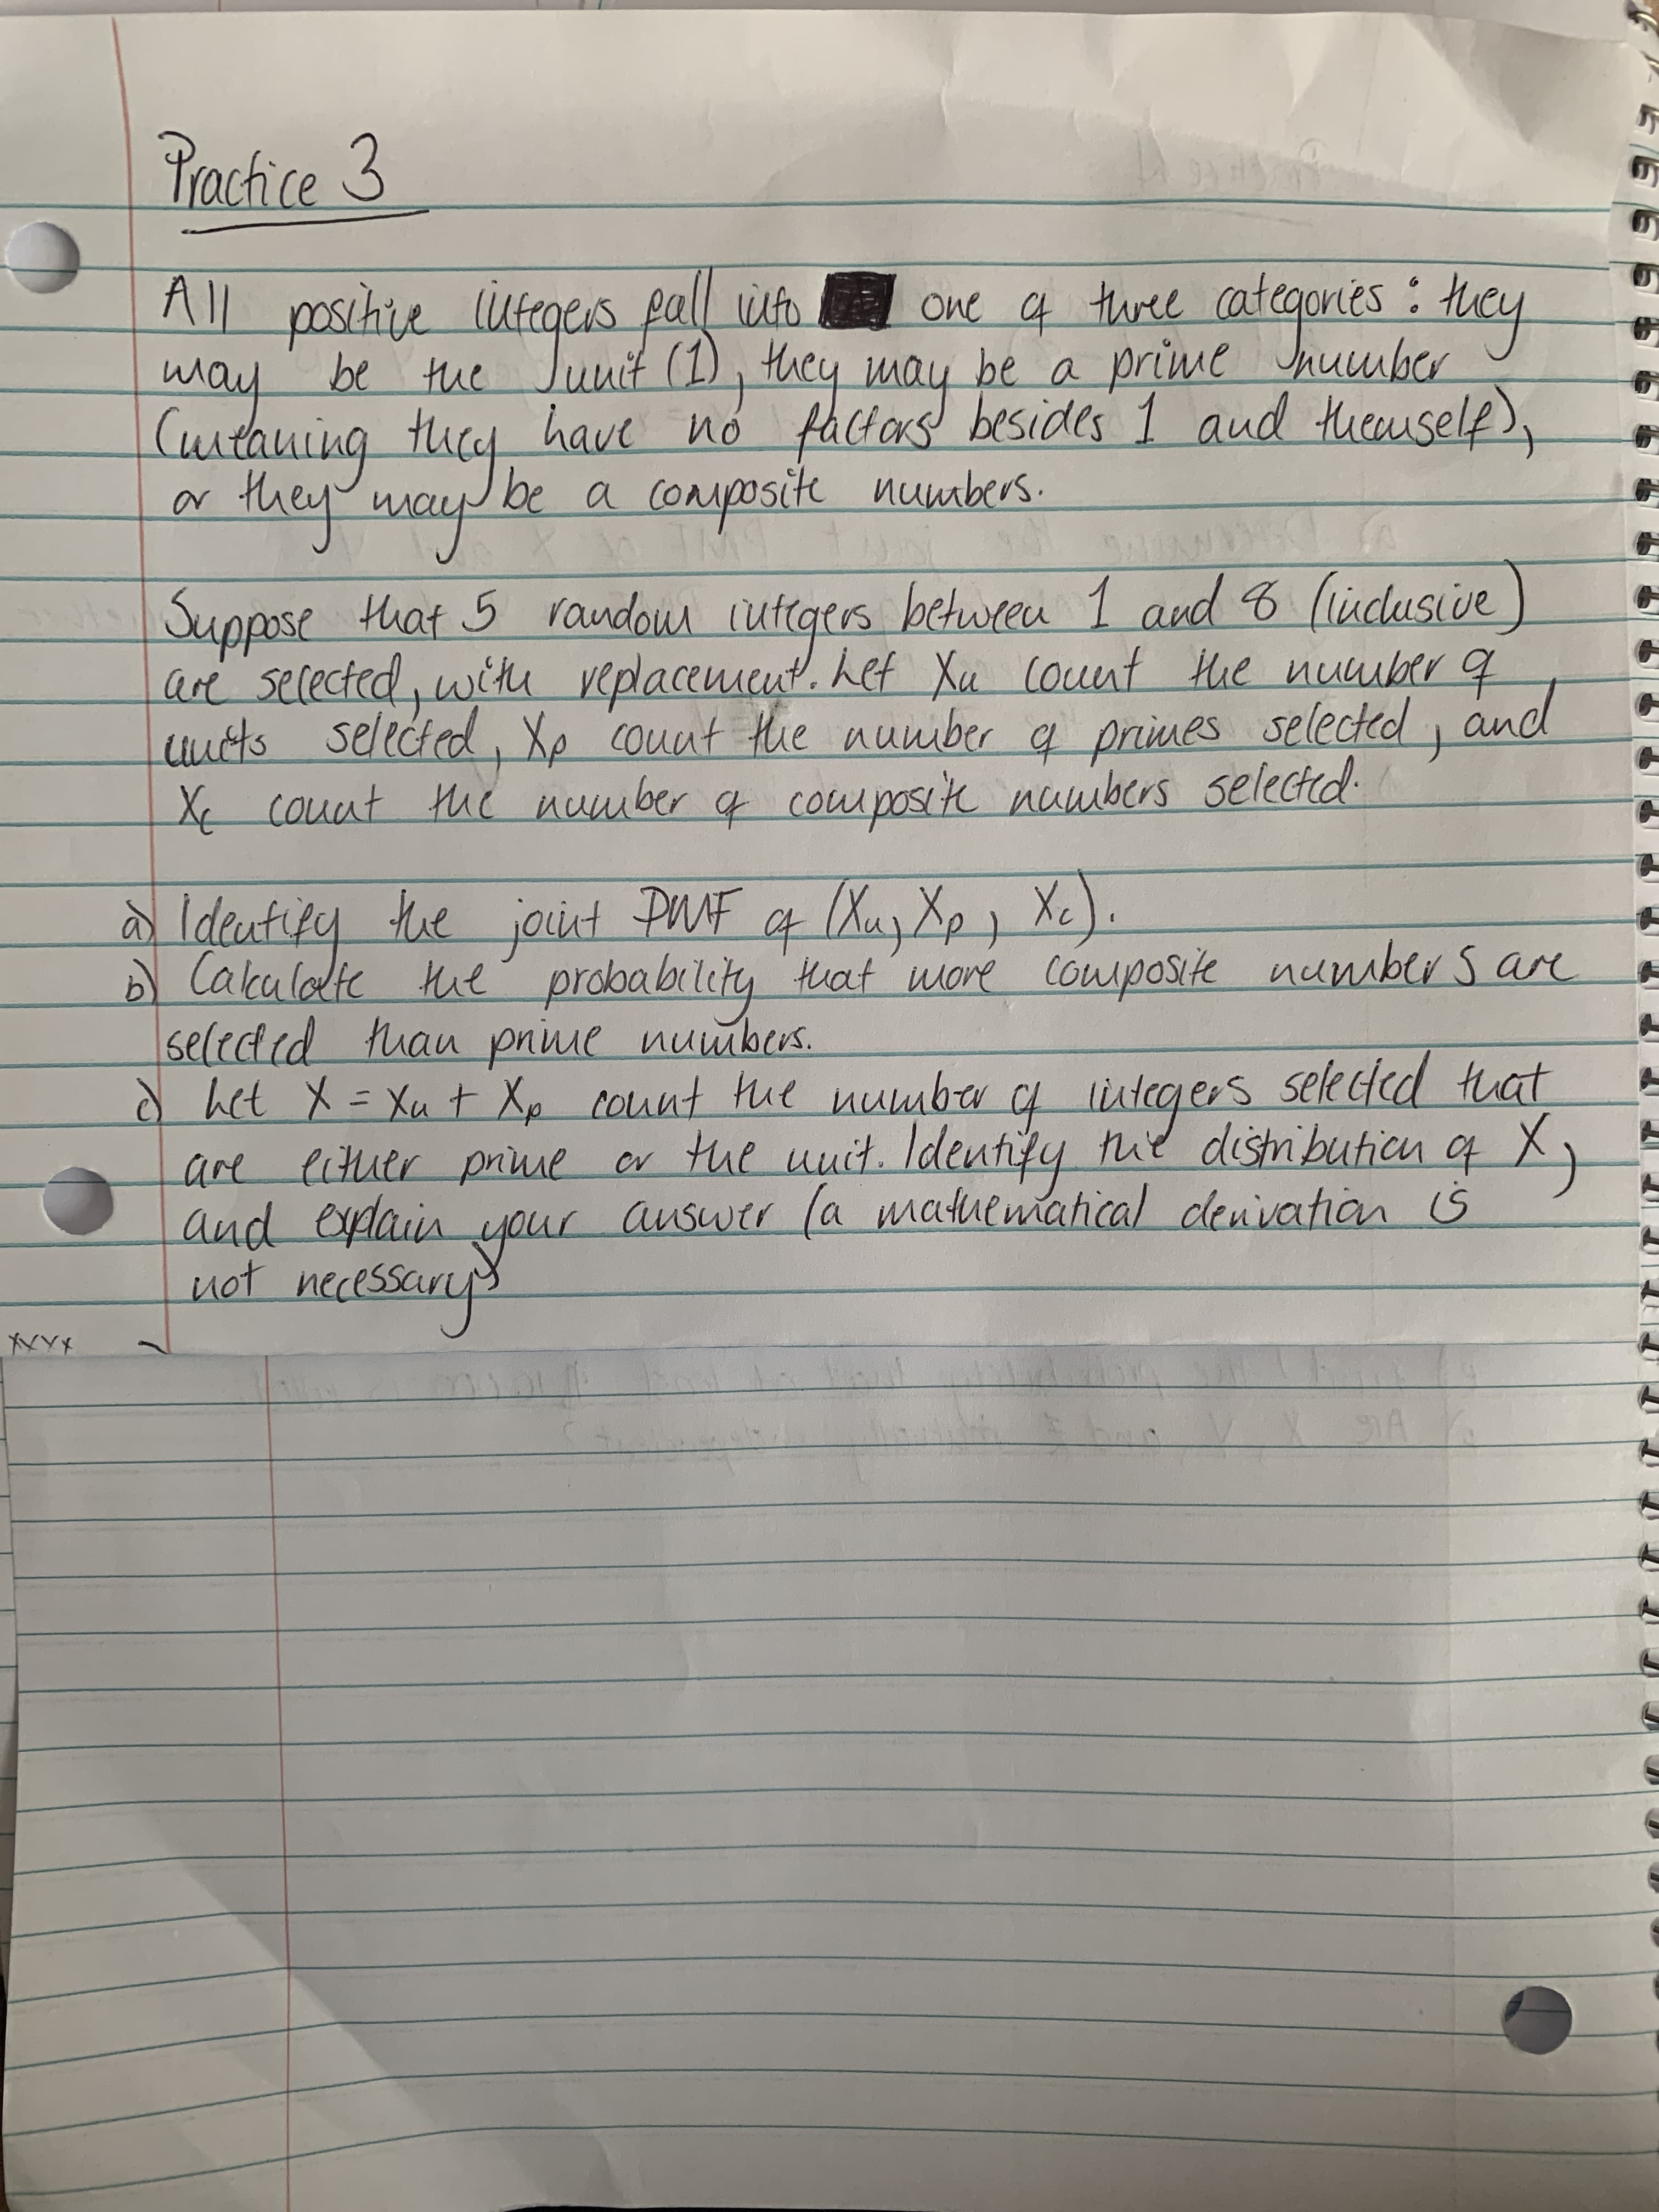 Practice 3
All positive integers fall into one of three categories: they
may be the unit (1), they may be a prime number
(meaning they have no factors besides 1 and themself),
or they may be a composite numbers.
Suppose that 5 random integers between 1 and 8 (inclusive)
are selected, with replacement. Let Xu count the number of
units selected, Xp count the number of primes selected, and
Xc count the number of composite numbers selected.
a) Identify the joint PMF of (Xu, Xp, Xc).
b) Calculate the probability that more composite numbers are
selected than prime numbers.
c) Let X = Xu + Xp count the number of integers selected that
are either prime or the unit. Identify the distribution of X,
and explain your answer (a mathematical derivation is
not necessary)